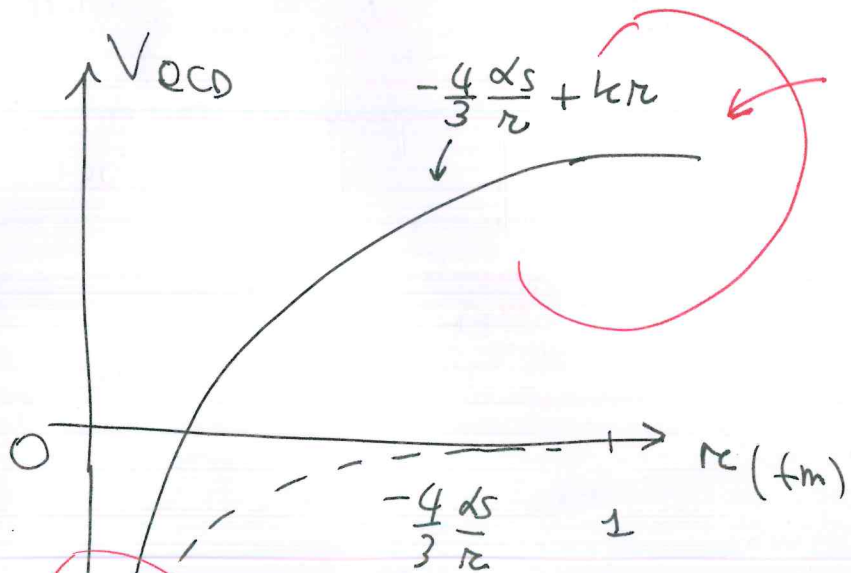 V_QCD
-4/3 αs/r + kr
O
r (fm)
-4/3 αs/r
1